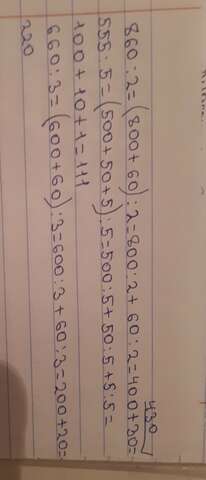 860:2=(800+60):2=800:2+60:2=400+30=
430
555:5=(500+50+5):5=500:5+50:5+5:5=
100+10+1=111
660:3=(600+60):3=600:3+60:3=200+20=
220